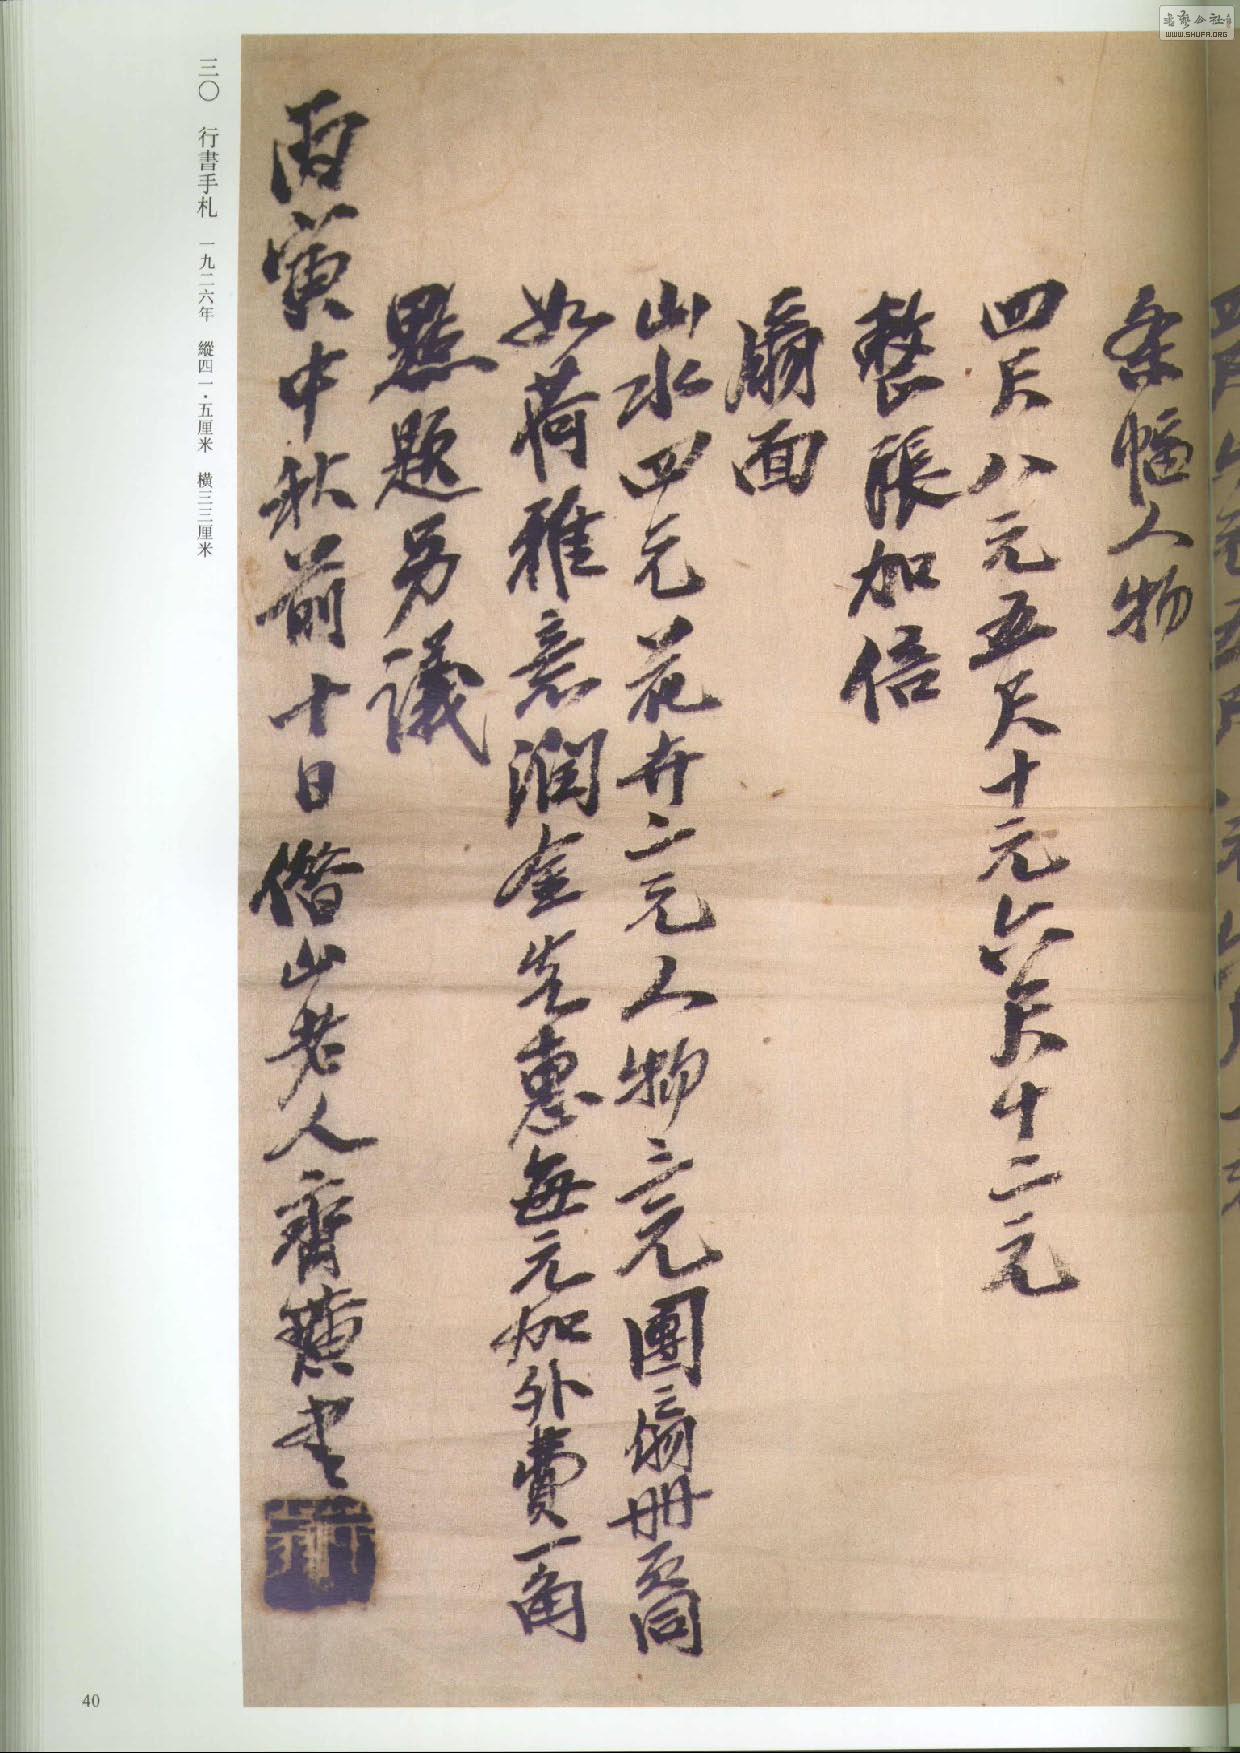 条幅人物
四尺八元五尺十元六尺十二元
整張加倍
扇面
山水四元花卉二元人物三元團扇册頁同
如荷雅意潤金先惠每元加外費一角
點題另議
丙寅中秋前十日借山老人齊璜書
三〇 行書手札 一九二六年 縱四一·五厘米 横三三厘米
40
WWW.SHUFA.ORG